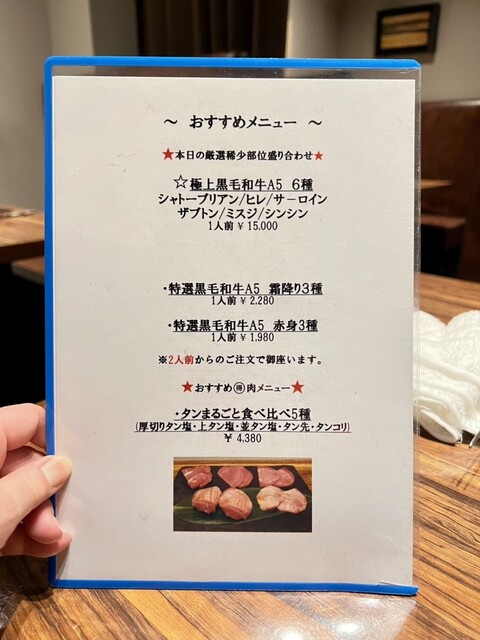 ～ おすすめメニュー ～
★本日の厳選稀少部位盛り合わせ★
☆極上黒毛和牛A5 6種
シャトーブリアン/ヒレ/サーロイン
ザブトン/ミスジ/シンシン
1人前 ¥ 15,000
・特選黒毛和牛A5 霜降り3種
1人前 ¥ 2,280
・特選黒毛和牛A5 赤身3種
1人前 ¥ 1,980
※2人前からのご注文で御座います。
★おすすめ㊕肉メニュー★
・タンまるごと食べ比べ5種
(厚切りタン塩・上タン塩・並タン塩・タン先・タンコリ)
¥ 4,380